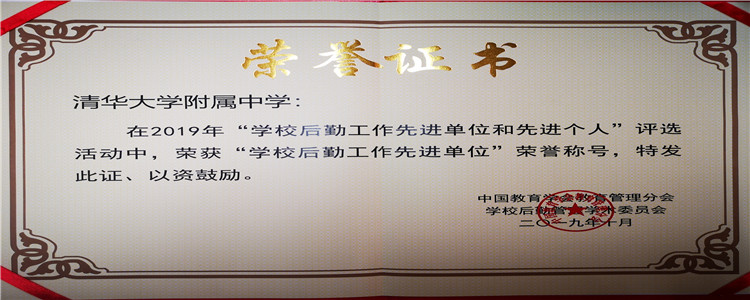 荣誉证书
清华大学附属中学：
在2019年“学校后勤工作先进单位和先进个人”评选
活动中，荣获“学校后勤工作先进单位”荣誉称号，特发
此证、以资鼓励。
中国教育学会教育管理分会
学校后勤管理学术委员会
二〇一九年十月